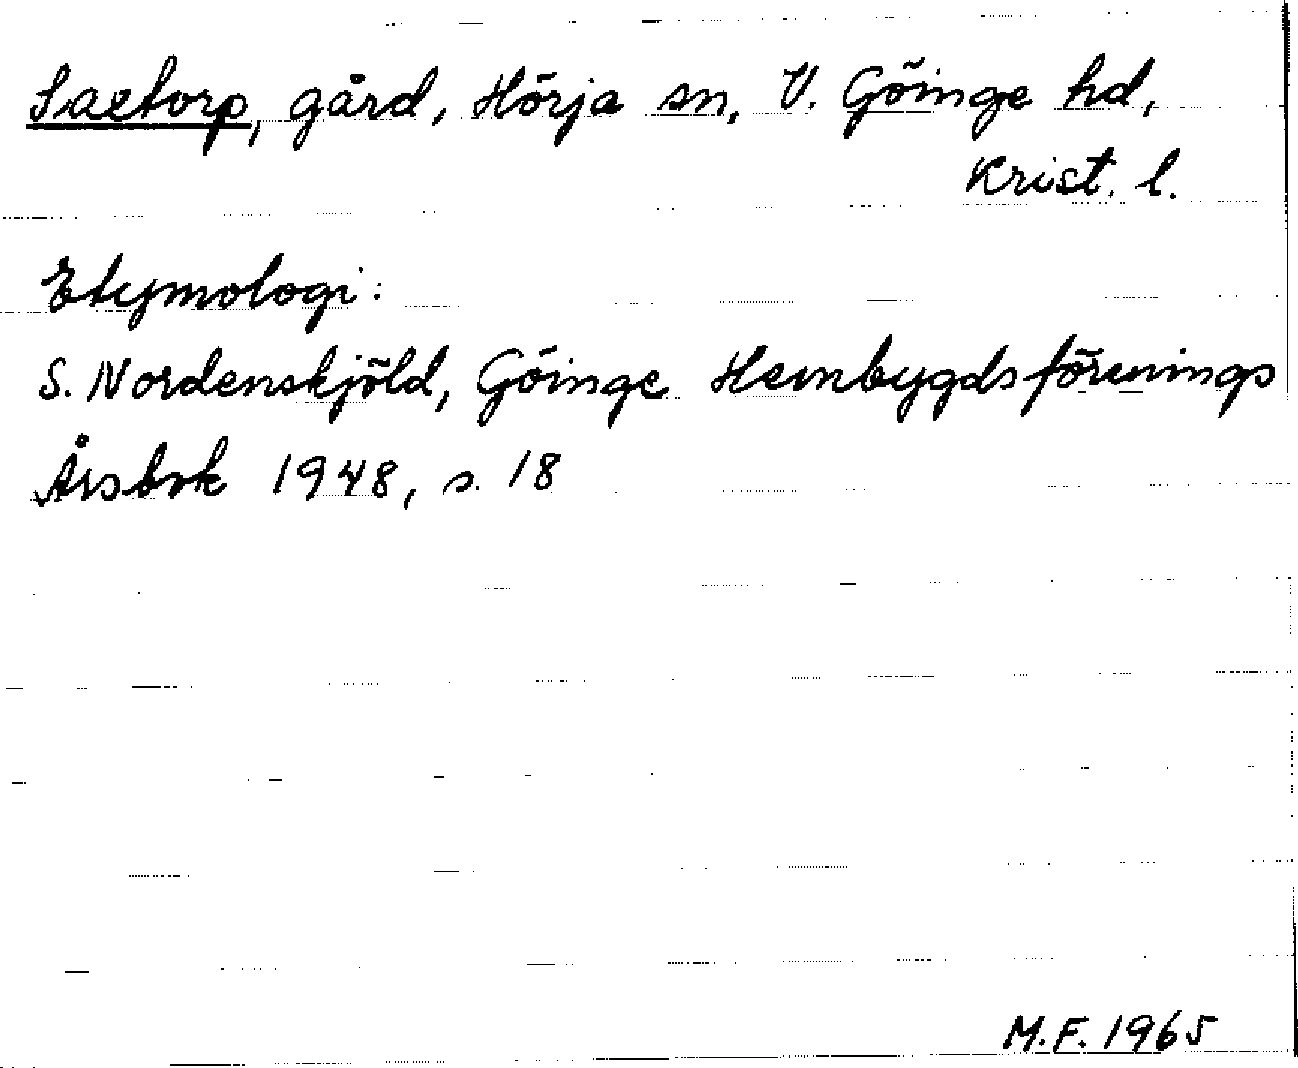 Saetorp, gård, Hörja sn, V. Göinge hd,
Krist. l.
Etymologi:
S. Nordenskjöld, Göinge Hembygdsförenings
Årsbok 1948, s. 18
M.F. 1965